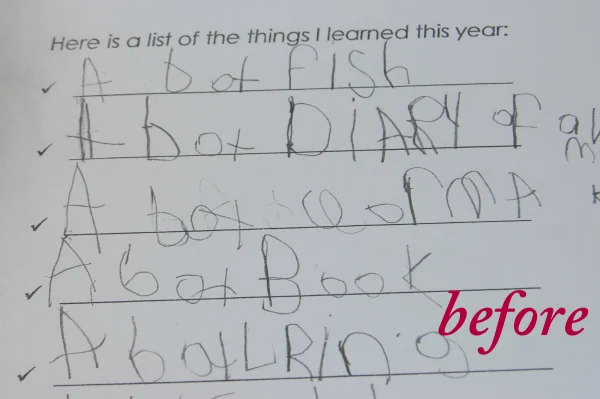 Here is a list of the things I learned this year:
A bot FISh
A bot DiARY of a
A bot worMA
A bot Book
before
A botLRiNg